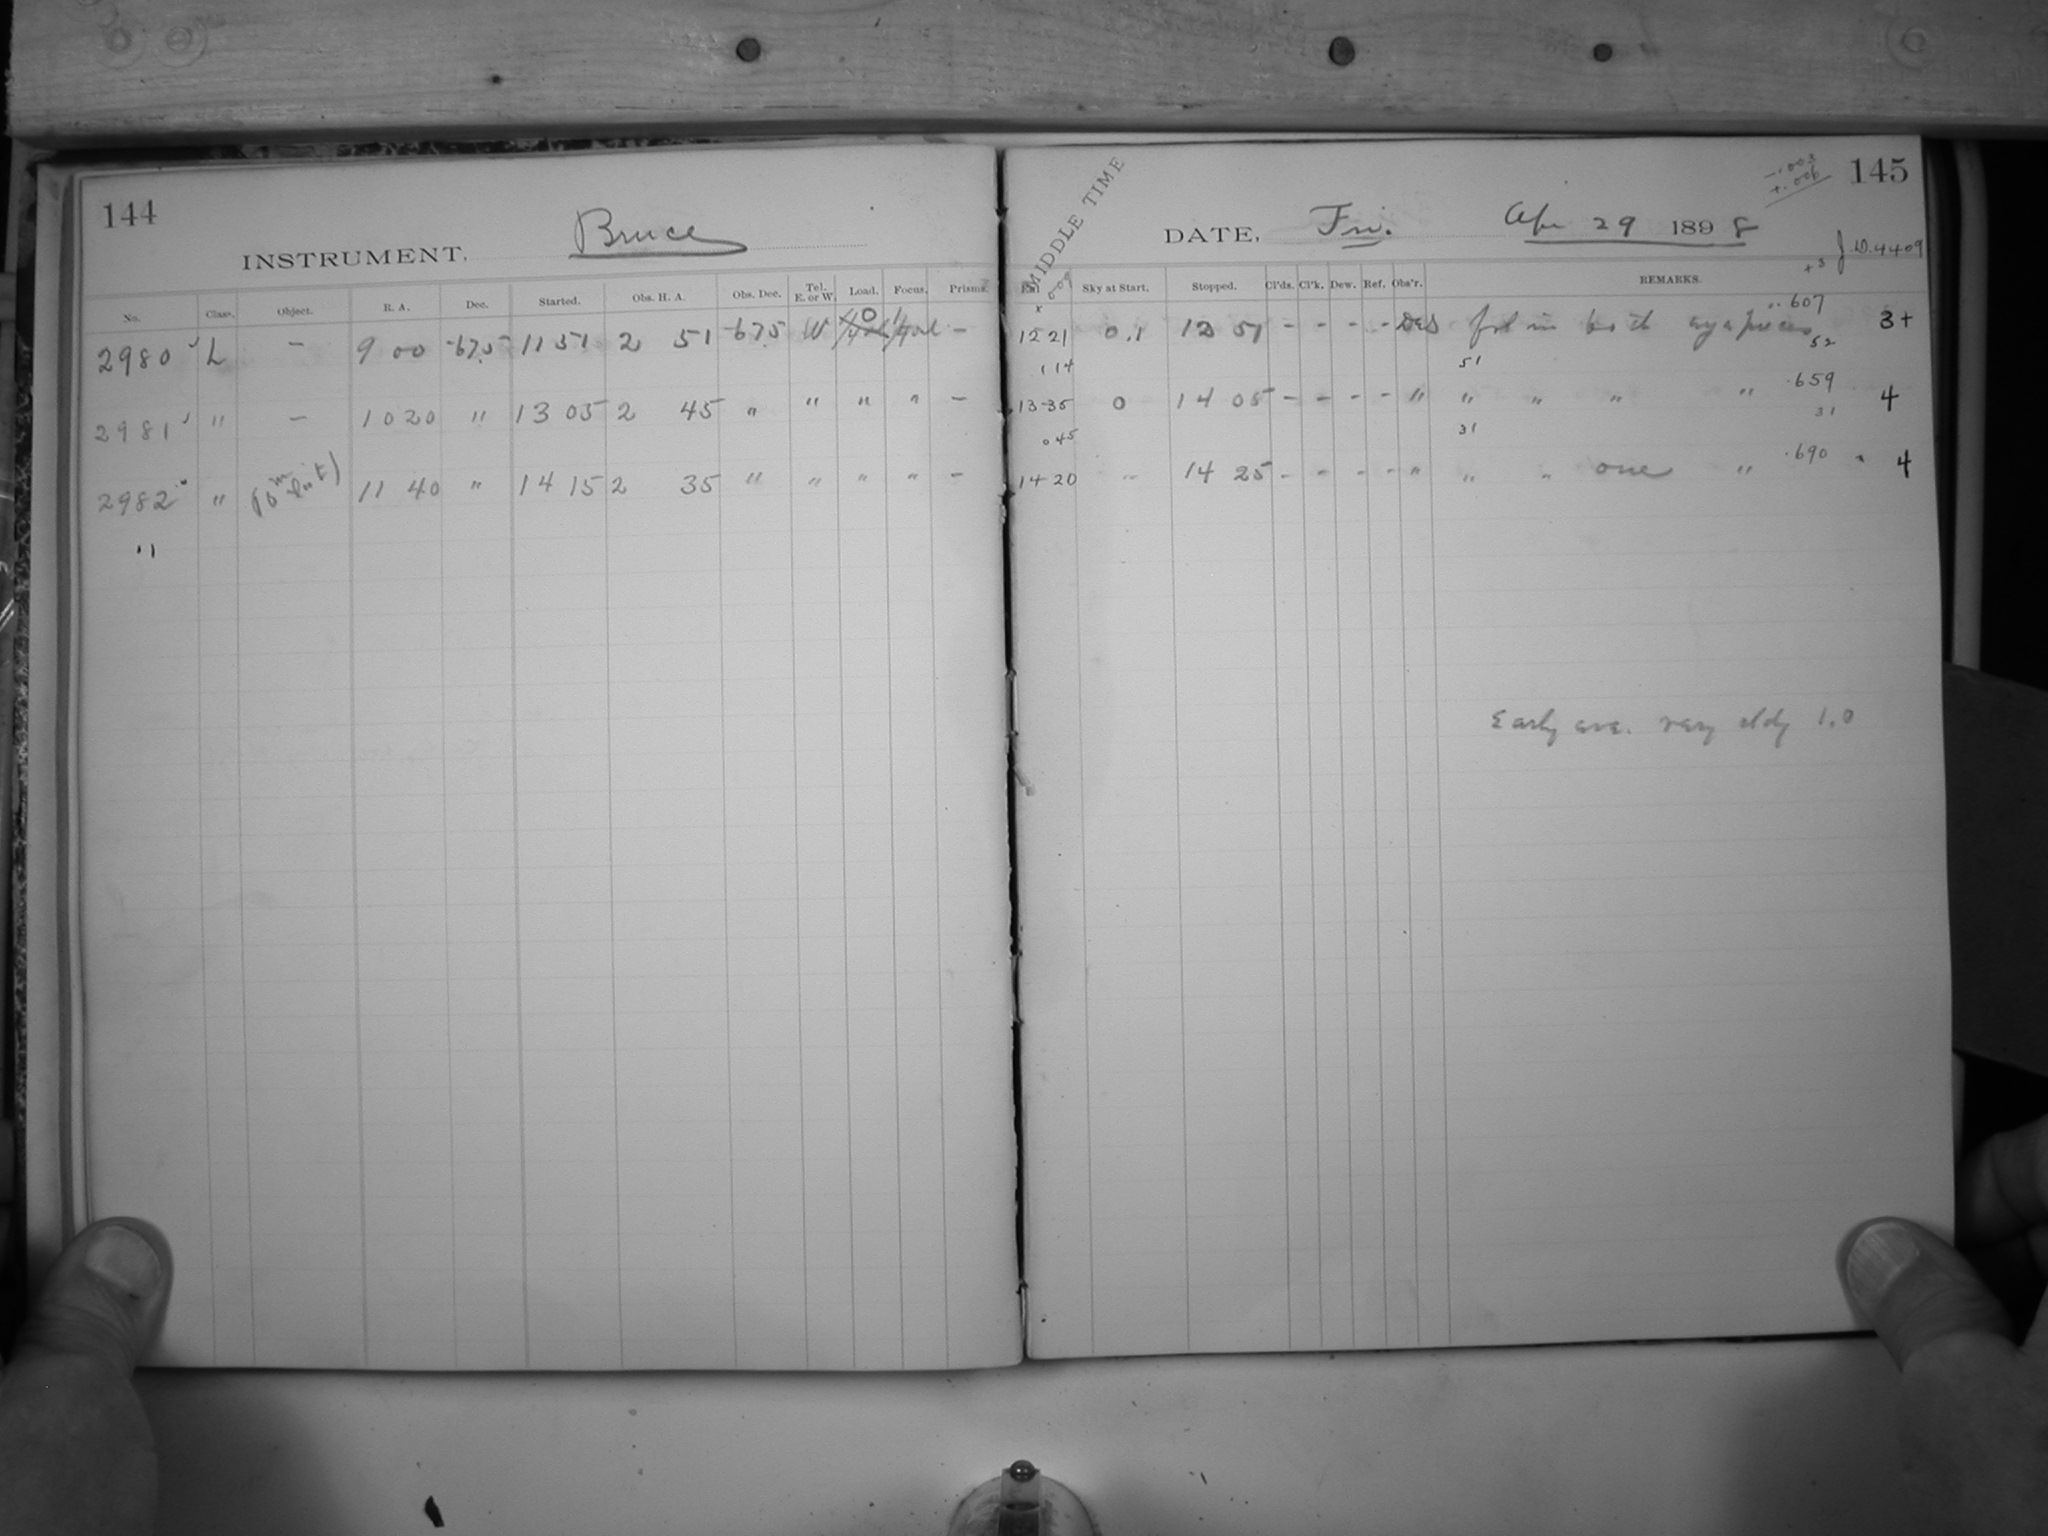 144
INSTRUMENT, Bruce
No. Class. Object. R. A. Dec. Started. Obs. H. A. Obs. Dec. Tel. E. or W. Load. Focus. Prisms.
2980 L — 9 00 -67.5 11 51 2 51 -67.5 W 0 —
2981 " — 10 20 " 13 05 2 45 " " " " —
2982 " 11 40 " 14 15 2 35 " " " " —
145
-.003
+.006
MIDDLE TIME
DATE, Fri. Apr 29 1898
J.D. 4409
+3
Sky at Start. Stopped. Cl'ds. Cl'k. Dew. Ref. Obs'r. REMARKS.
.009
12 21 0.1 12 51 - - - - fol in both eyepieces .607 3+
114 51 52
13-35 0 14 05 - - - - " " " " " .659 4
045 31 31
14-20 " 14 25 - - - - " " " one " .690 4
Early eve. very cldy 1.0